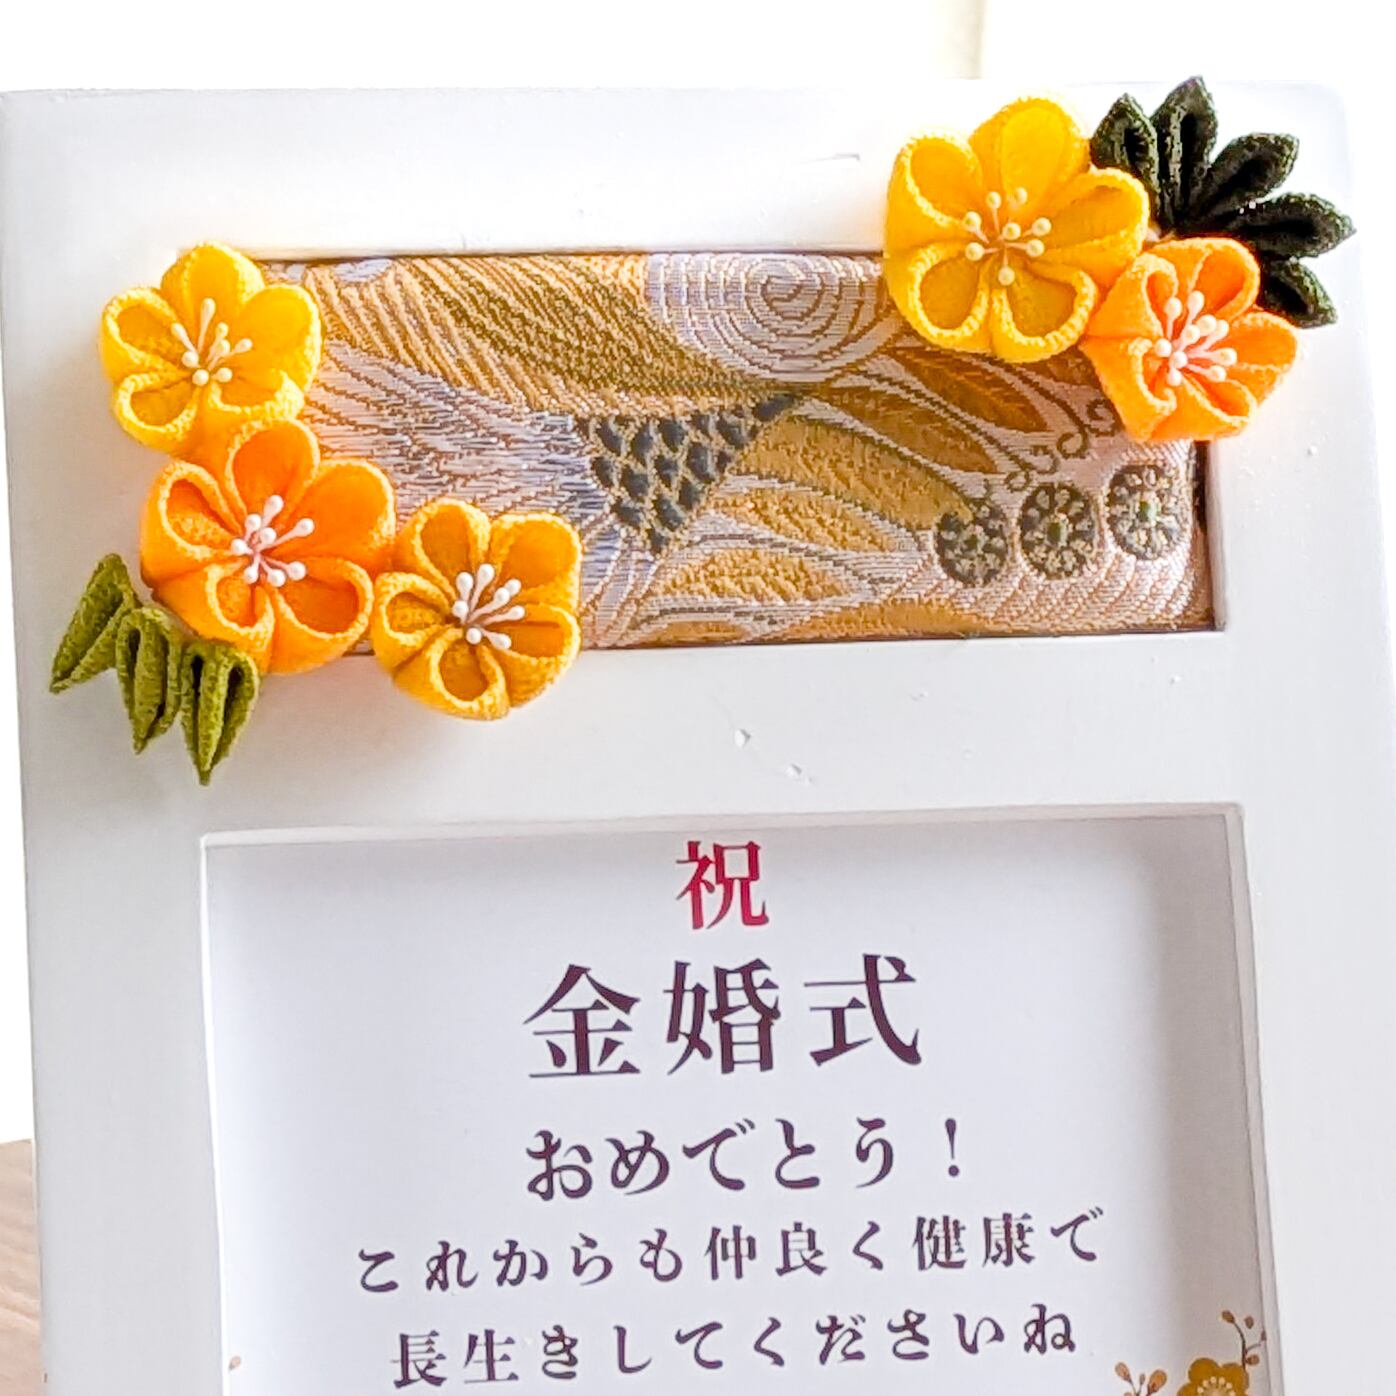 祝
金婚式
おめでとう！
これからも仲良く健康で
長生きしてくださいね